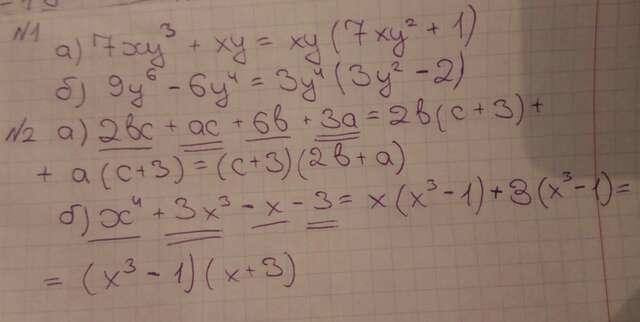 №1 а) 7xy³ + xy = xy (7xy² + 1)
б) 9y⁶ - 6y⁴ = 3y⁴ (3y² - 2)
№2 а) 2bc + ac + 6b + 3a = 2b (c + 3) +
+ a (c + 3) = (c + 3) (2b + a)
б) x⁴ + 3x³ - x - 3 = x (x³ - 1) + 3 (x³ - 1) =
= (x³ - 1) (x + 3)